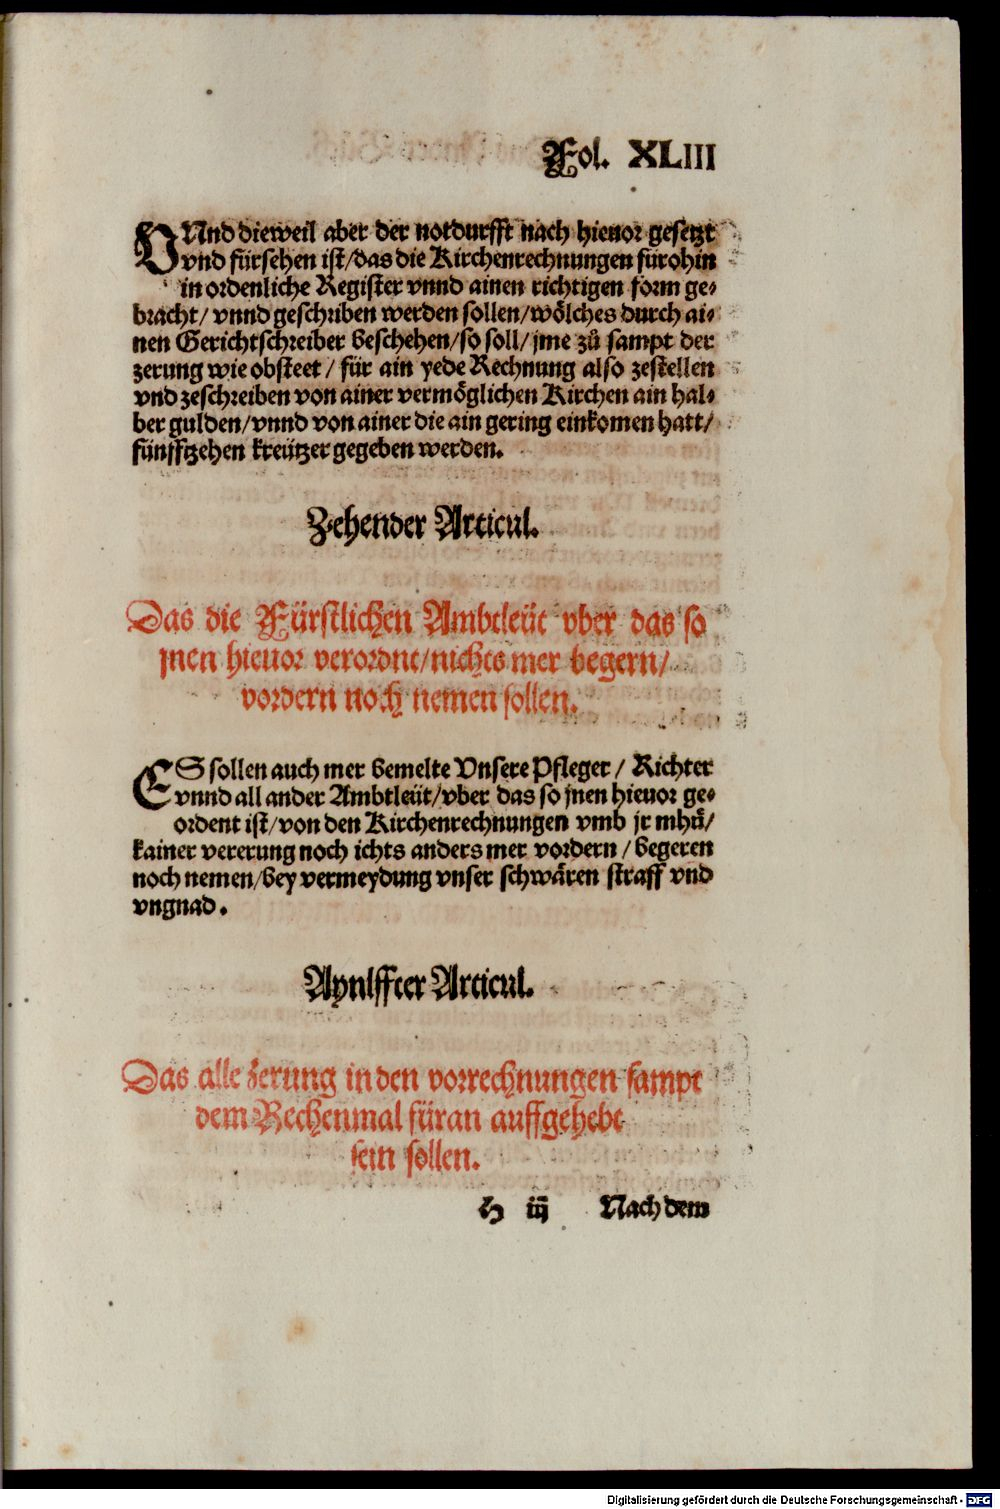 Fol. XLIII
VNnd dieweil aber der notdurfft nach hieuor gesetzt
vnd fürsehen ist/das die Kirchenrechnungen fürohin
in ordenliche Register vnnd ainen richtigen form ge⸗
bracht/ vnnd geschriben werden sollen/wölches durch ai⸗
nen Gerichtschreiber beschehen/so soll/jme zů sampt der
zerung wie obsteet / für ain yede Rechnung also zestellen
vnd zeschreiben von ainer vermöglichen Kirchen ain hal⸗
ber gulden/vnnd von ainer die ain gering einkomen hatt/
fünfftzehen kreützer gegeben werden.
Zehender Articul.
Das die Fürstlichen Ambtleüt vber das so
jnen hieuor verordnt/nichts mer begern/
vordern noch nemen sollen.
ES sollen auch mer bemelte Vnsere Pfleger / Richter
vnnd all ander Ambtleüt/vber das so jnen hieuor ge⸗
ordent ist/von den Kirchenrechnungen vmb jr mhü/
kainer vererung noch ichts anders mer vordern / begeren
noch nemen/bey vermeydung vnser schwären straff vnd
vngnad.
Aynlffter Articul.
Das alle zerung in den vorrechnungen sampt
dem Rechenmal füran auffgehebt
sein sollen.
h iij Nach dem
Digitalisierung gefördert durch die Deutsche Forschungsgemeinschaft - DFG